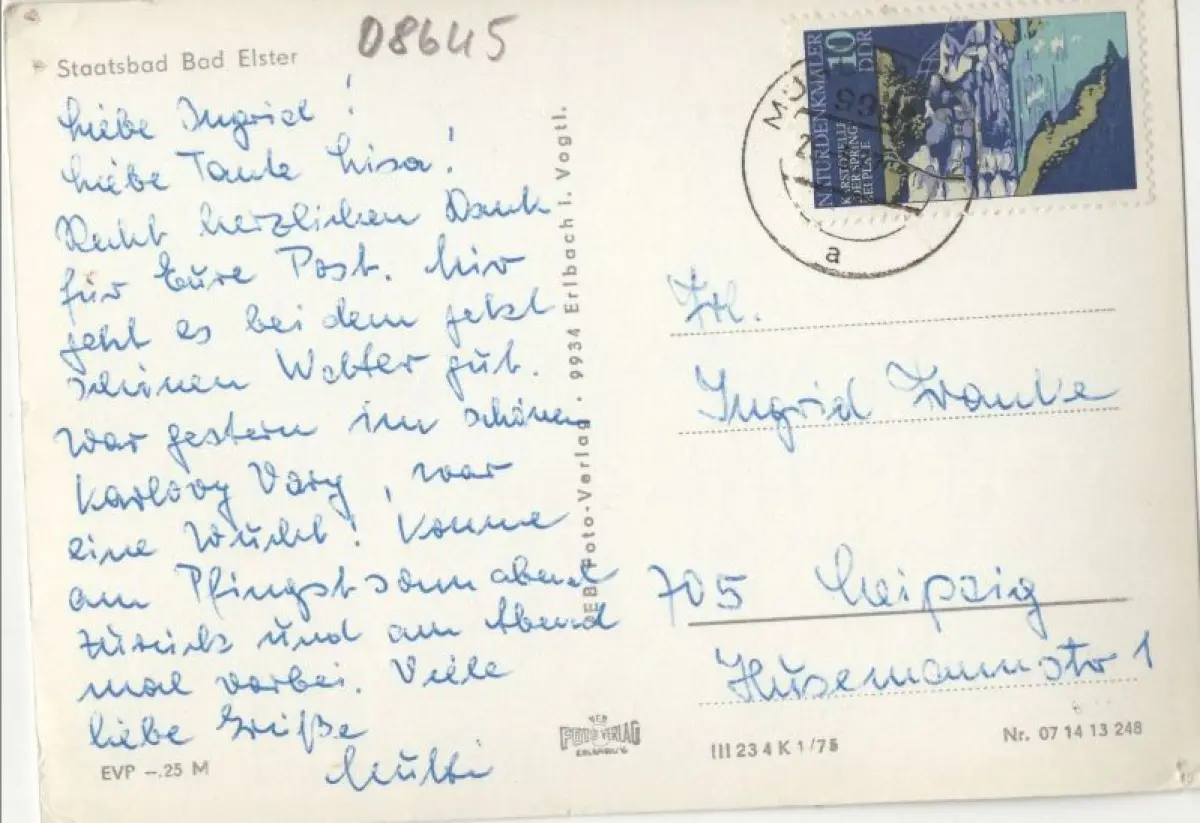 Staatsbad Bad Elster
08645
Liebe Ingrid!
Liebe Tante Lisa!
Recht herzlichen Dank
für Eure Post. Mir
geht es bei dem jetzt
schönen Wetter gut.
War gestern im schönen
Karlovy Vary, war
eine Wucht! Komme
am Pfingstsonnabend
zurück und am Abend
mal vorbei. Viele
liebe Grüße
EVP -.25 M
VEB Foto-Verlag . 9934 Erlbach i. Vogtl.
NATURDENKMALER
10
DDR
KARSTQUELLE
DER SPRING
BEI PLAUE
a
Frl.
Ingrid Franke
705 Leipzig
Husemannstr 1
VEB
FOTO VERLAG
ERLBACH/V.
III 23 4 K 1/75
Nr. 07 14 13 248